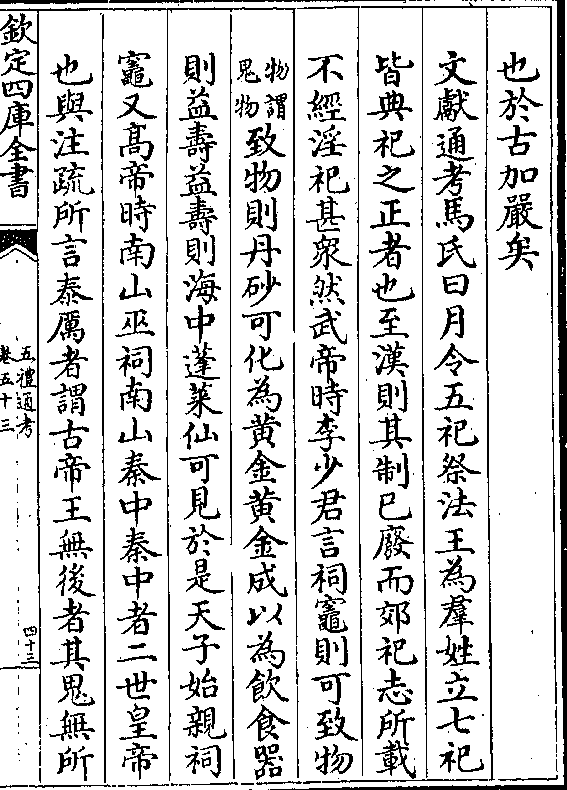 也於古加嚴矣
文獻通考馬氏曰月令五祀祭法王為羣姓立七祀
皆典祀之正者也至漢則其制已廢而郊祀志所載
不經淫祀甚衆然武帝時李少君言祠竈則可致物
物謂
鬼物
致物則丹砂可化為黄金黄金成以為飲食器
則益壽益壽則海中蓬萊仙可見於是天子始親祠
竈又高帝時南山巫祠南山秦中秦中者二世皇帝
也與注疏所言泰厲者謂古帝王無後者其鬼無所
欽定四庫全書
五禮通考
卷五十三
四十三